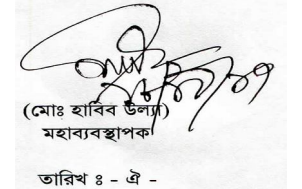 (মোঃ হাবিব উল্যা)
মহাব্যবস্থাপক
তারিখ ঃ - ঐ -